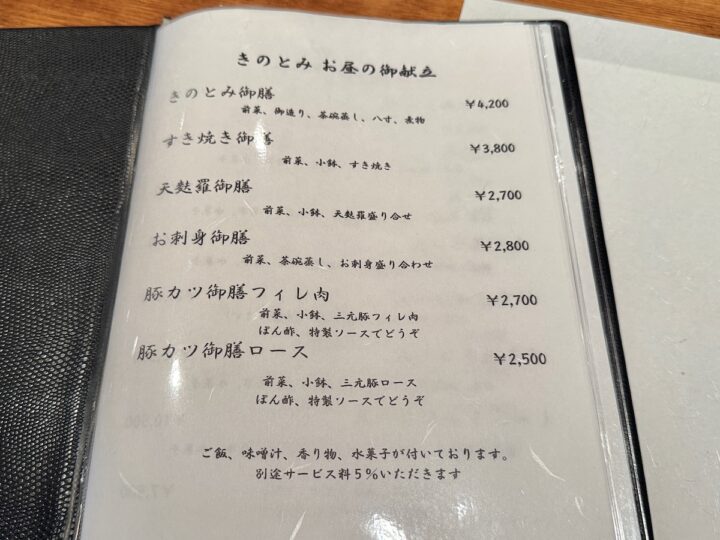 きのとみ お昼の御献立
きのとみ御膳 ¥4,200
前菜、御造り、茶碗蒸し、八寸、煮物
すき焼き御膳 ¥3,800
前菜、小鉢、すき焼き
天麩羅御膳 ¥2,700
前菜、小鉢、天麩羅盛り合せ
お刺身御膳 ¥2,800
前菜、茶碗蒸し、お刺身盛り合わせ
豚カツ御膳フィレ肉 ¥2,700
前菜、小鉢、三元豚フィレ肉
ぽん酢、特製ソースでどうぞ
豚カツ御膳ロース ¥2,500
前菜、小鉢、三元豚ロース
ぽん酢、特製ソースでどうぞ
ご飯、味噌汁、香り物、水菓子が付いております。
別途サービス料5%いただきます